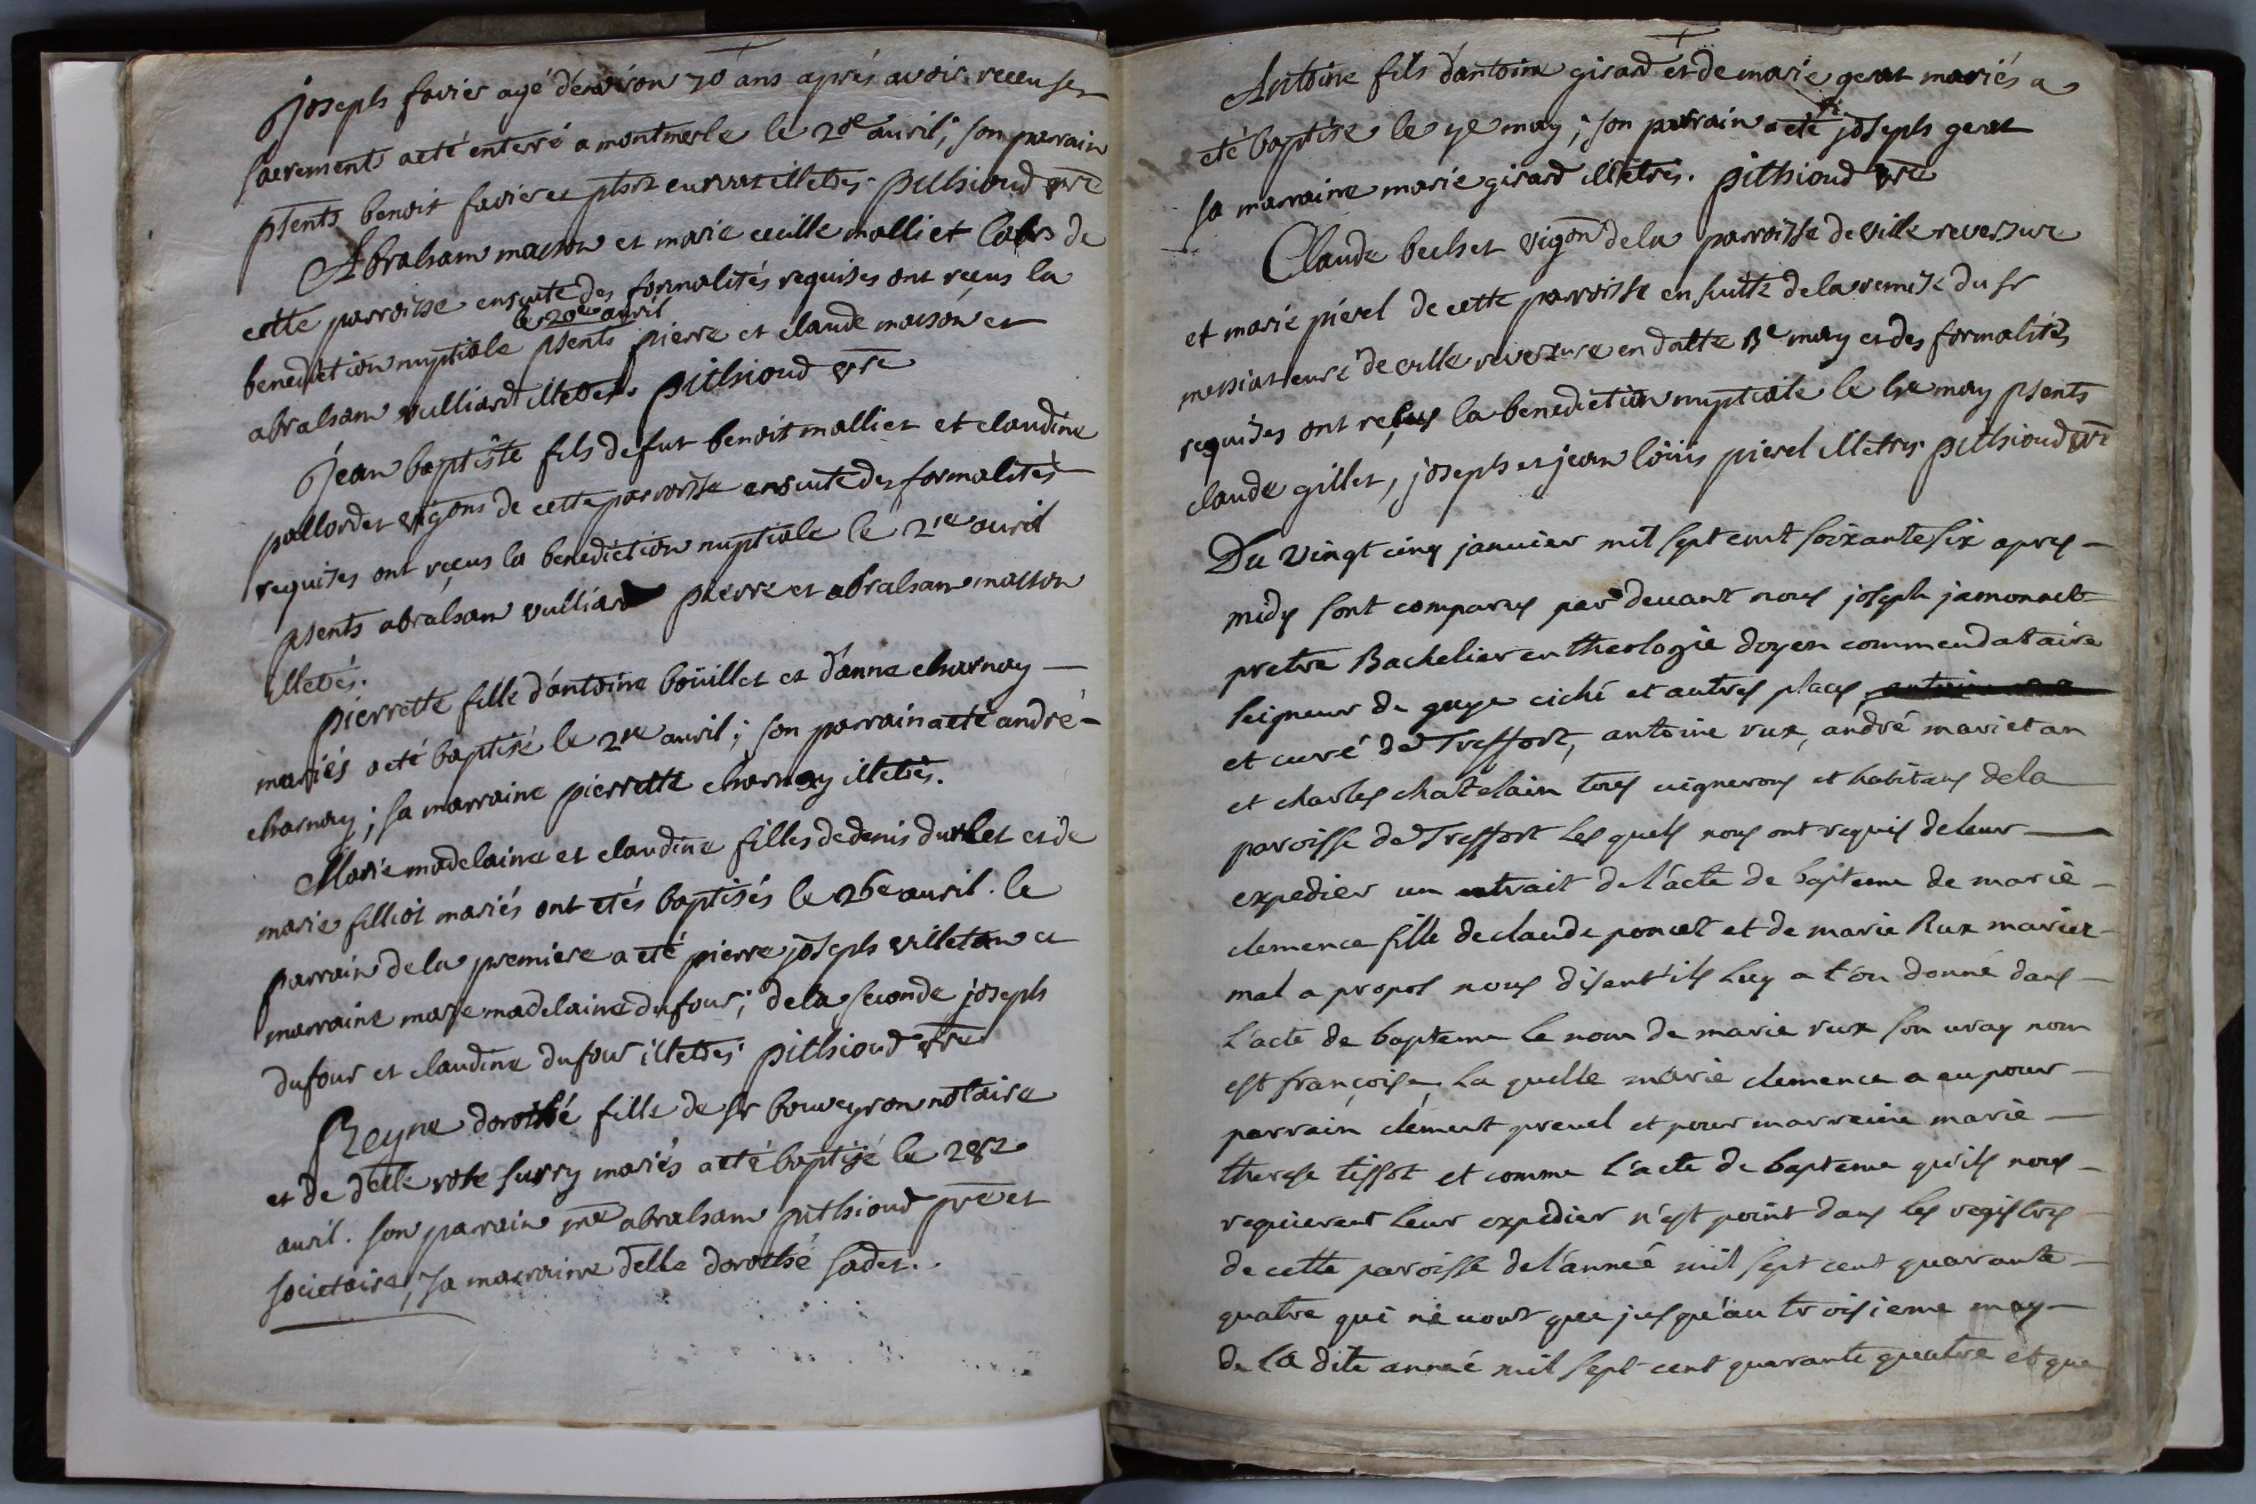 joseph favier agé d'environ 70 ans aprés avoir receu ses
sacrements a eté enterré a montmerle le 20e auril; son parrain
psents benoit favier et plsrs illetrés. pithioud ptre
Abraham masson et marie cecille malliet labrs de
cette parroisse ensuite des formalités requises ont reçus la
le 20e avril
benediction nuptiale psents pierre et claude masson et
abraham vulliard illetrés pithioud ptre
jean baptiste fils de fut benoit malliet et claudine
pallordet vigons de cette parroisse ensuite des formalités
requises ont reçus la benediction nuptiale le 21e auril
psents abraham vulliard pierre et abraham masson
illetrés.
pierrette fille d'antoine boüillet et d'anne charnay —
mariés a eté baptisé le auril; son parrain a eté andré -
charnay; sa marraine pierrette charnay illetrés.
Marie madelaine et claudine filles de denis durlet et de
marie filliot mariés ont etés baptisés le 26e auril. le
parrain de la premiere a eté pierre joseph villeton et
marraine marie madelaine dufour; de la seconde joseph
dufour et claudine dufour illetrés. pithioud ptre
Reyne dorothé fille de sr bouveyron notaire
et de delle rose surry mariés a eté baptisé le 28e
auril. son parrain mre abraham pithioud ptre et
societaire; sa marraine delle dorothé sadet.
Antoine fils d'antoine girard et de marie gerat mariés a
eté baptisé le ye may; son parrain a eté joseph gerat
sa marraine marie girard illetrés. pithioud ptre
Claude bechet vigon de la parroisse de ville reversure
et marie pierel de cette parroisse en suitte de la remise du sr
messiat curé de ville reversure en datte 3e may et des formalités
requises ont reçus la benediction nuptiale le may psents
claude gillet, joseph et jean loüis pierel illetrés pithioud ptre
Du vingt cinq janvier mil sept cent soixante six apres —
midy sont comparus par devant nous joseph jamonnet
pretre Bachelier en theologie doyen commendataire
seigneur de guye ciché et autres places
et curé de Treffort, antoine rux, andré marietan
et charles chatelain tous vignerons et habitans de la
paroisse de Treffort les quels nous ont requis de leur —
expedier un extrait de l'acte de bapteme de marie -
clemence fille de claude poncet et de marie Rux mariez -
mal a propos nous disent'ils luy a t'on donné dans -
l'acte de bapteme le nom de marie rux son vray nom
est françoise, la quelle marie clemence a eu pour -
parrain clement prevel et pour marreine marie —
therese tissot et comme l'acte de bapteme qu'ils nous -
requierent leur expedier n'est point dans les registres -
de cette paroisse de l'année mil sept cent quarante —
quatre qui ne vont que jusqu'au troisieme may —
de la dite année mil sept cent quarante quatre et que